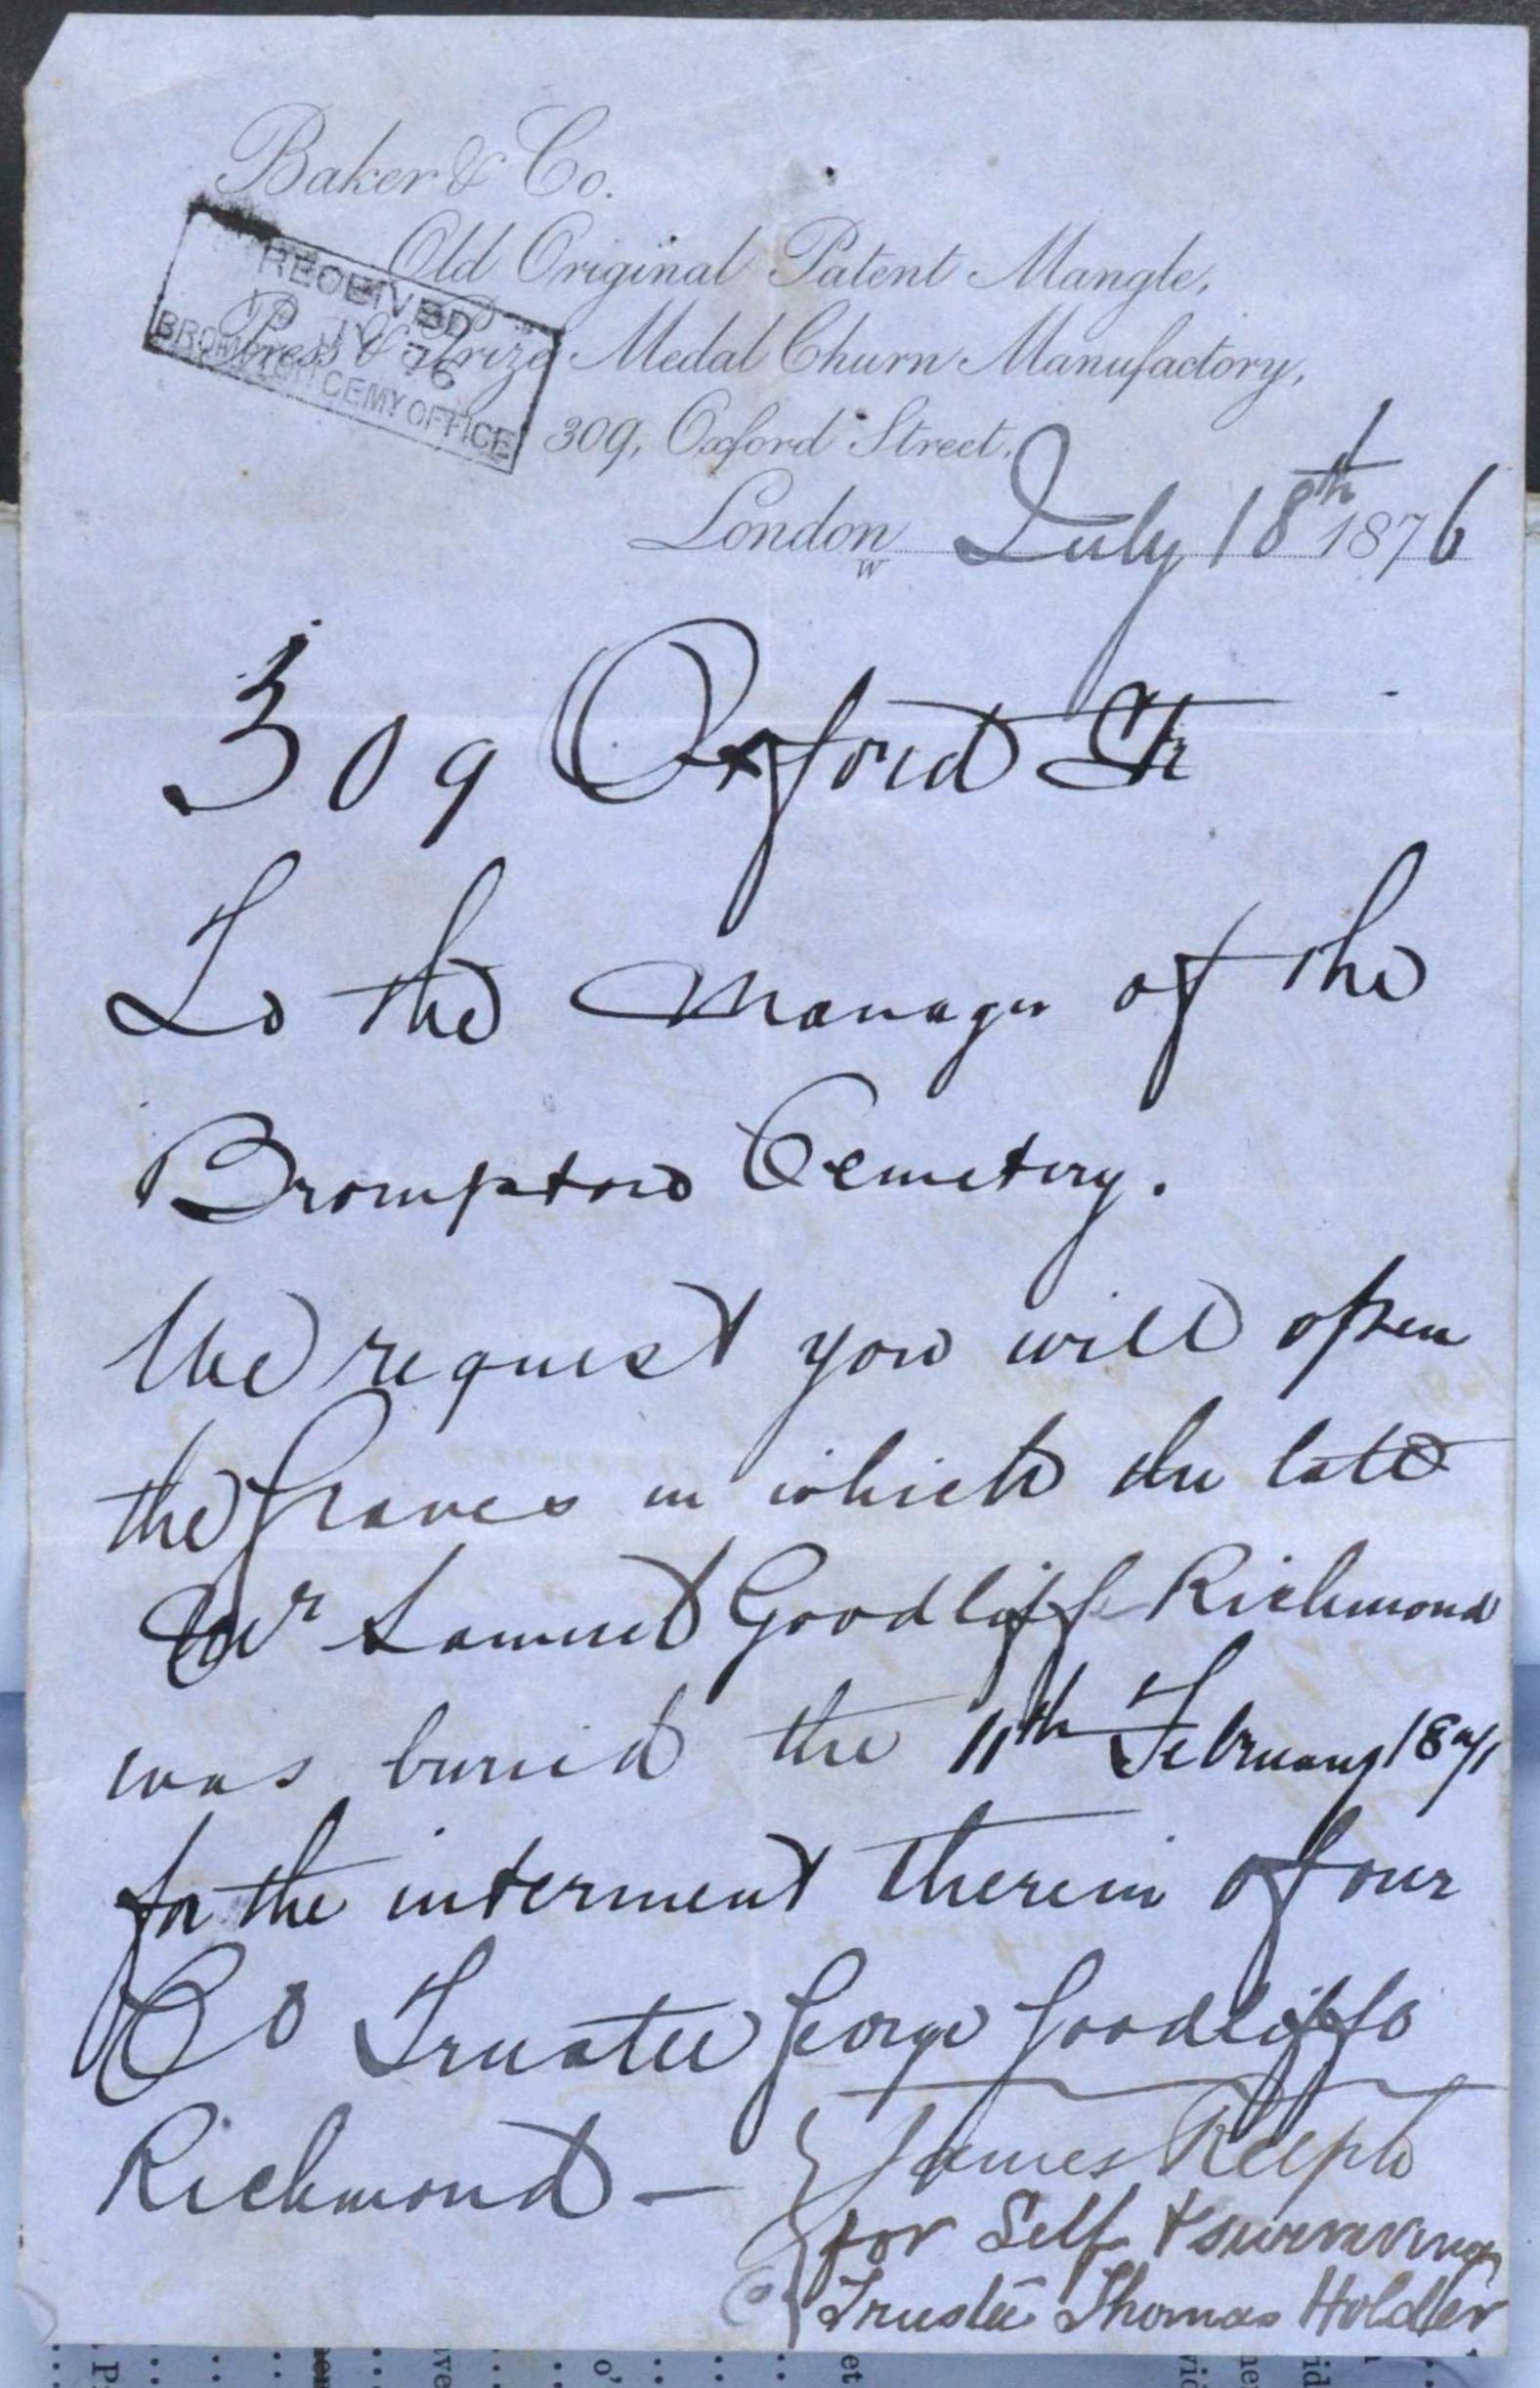 Baker & Co.
Old Original Patent Mangle,
Press & Prize Medal Churn Manufactory,
309, Oxford Street,
London W July 18th 1876
RECEIVED
JY 76
BROMPTON CEMY OFFICE
309 Oxford Str
To the Manager of the
Brompton Cemetery.
We request you will open
the Graves in which the late
Mr Samuel Goodliffe Richmond
was buried the 11th February 1871
for the interment therein of our
Co Trustee George Goodliffe
Richmond —
James Relph
for Self & surviving
Co Trustee Thomas Holder